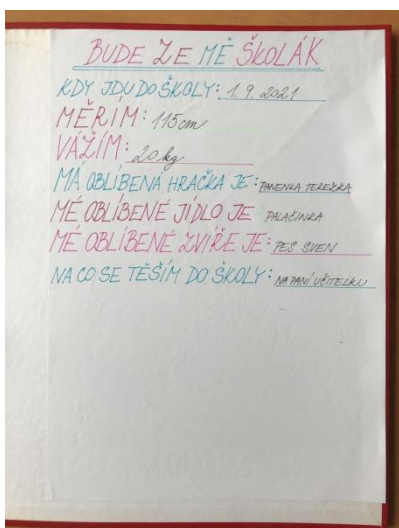 BUDE ZE MĚ ŠKOLÁK
KDY JDU DO ŠKOLY: 1. 9. 2021
MĚŘÍM: 115 cm
VÁŽÍM: 20 kg
MÁ OBLÍBENÁ HRAČKA JE: PANENKA TEREZKA
MÉ OBLÍBENÉ JÍDLO JE PALAČINKA
MÉ OBLÍBENÉ ZVÍŘE JE: PES SVEN
NA CO SE TĚŠÍM DO ŠKOLY: NA PANÍ UČITELKU